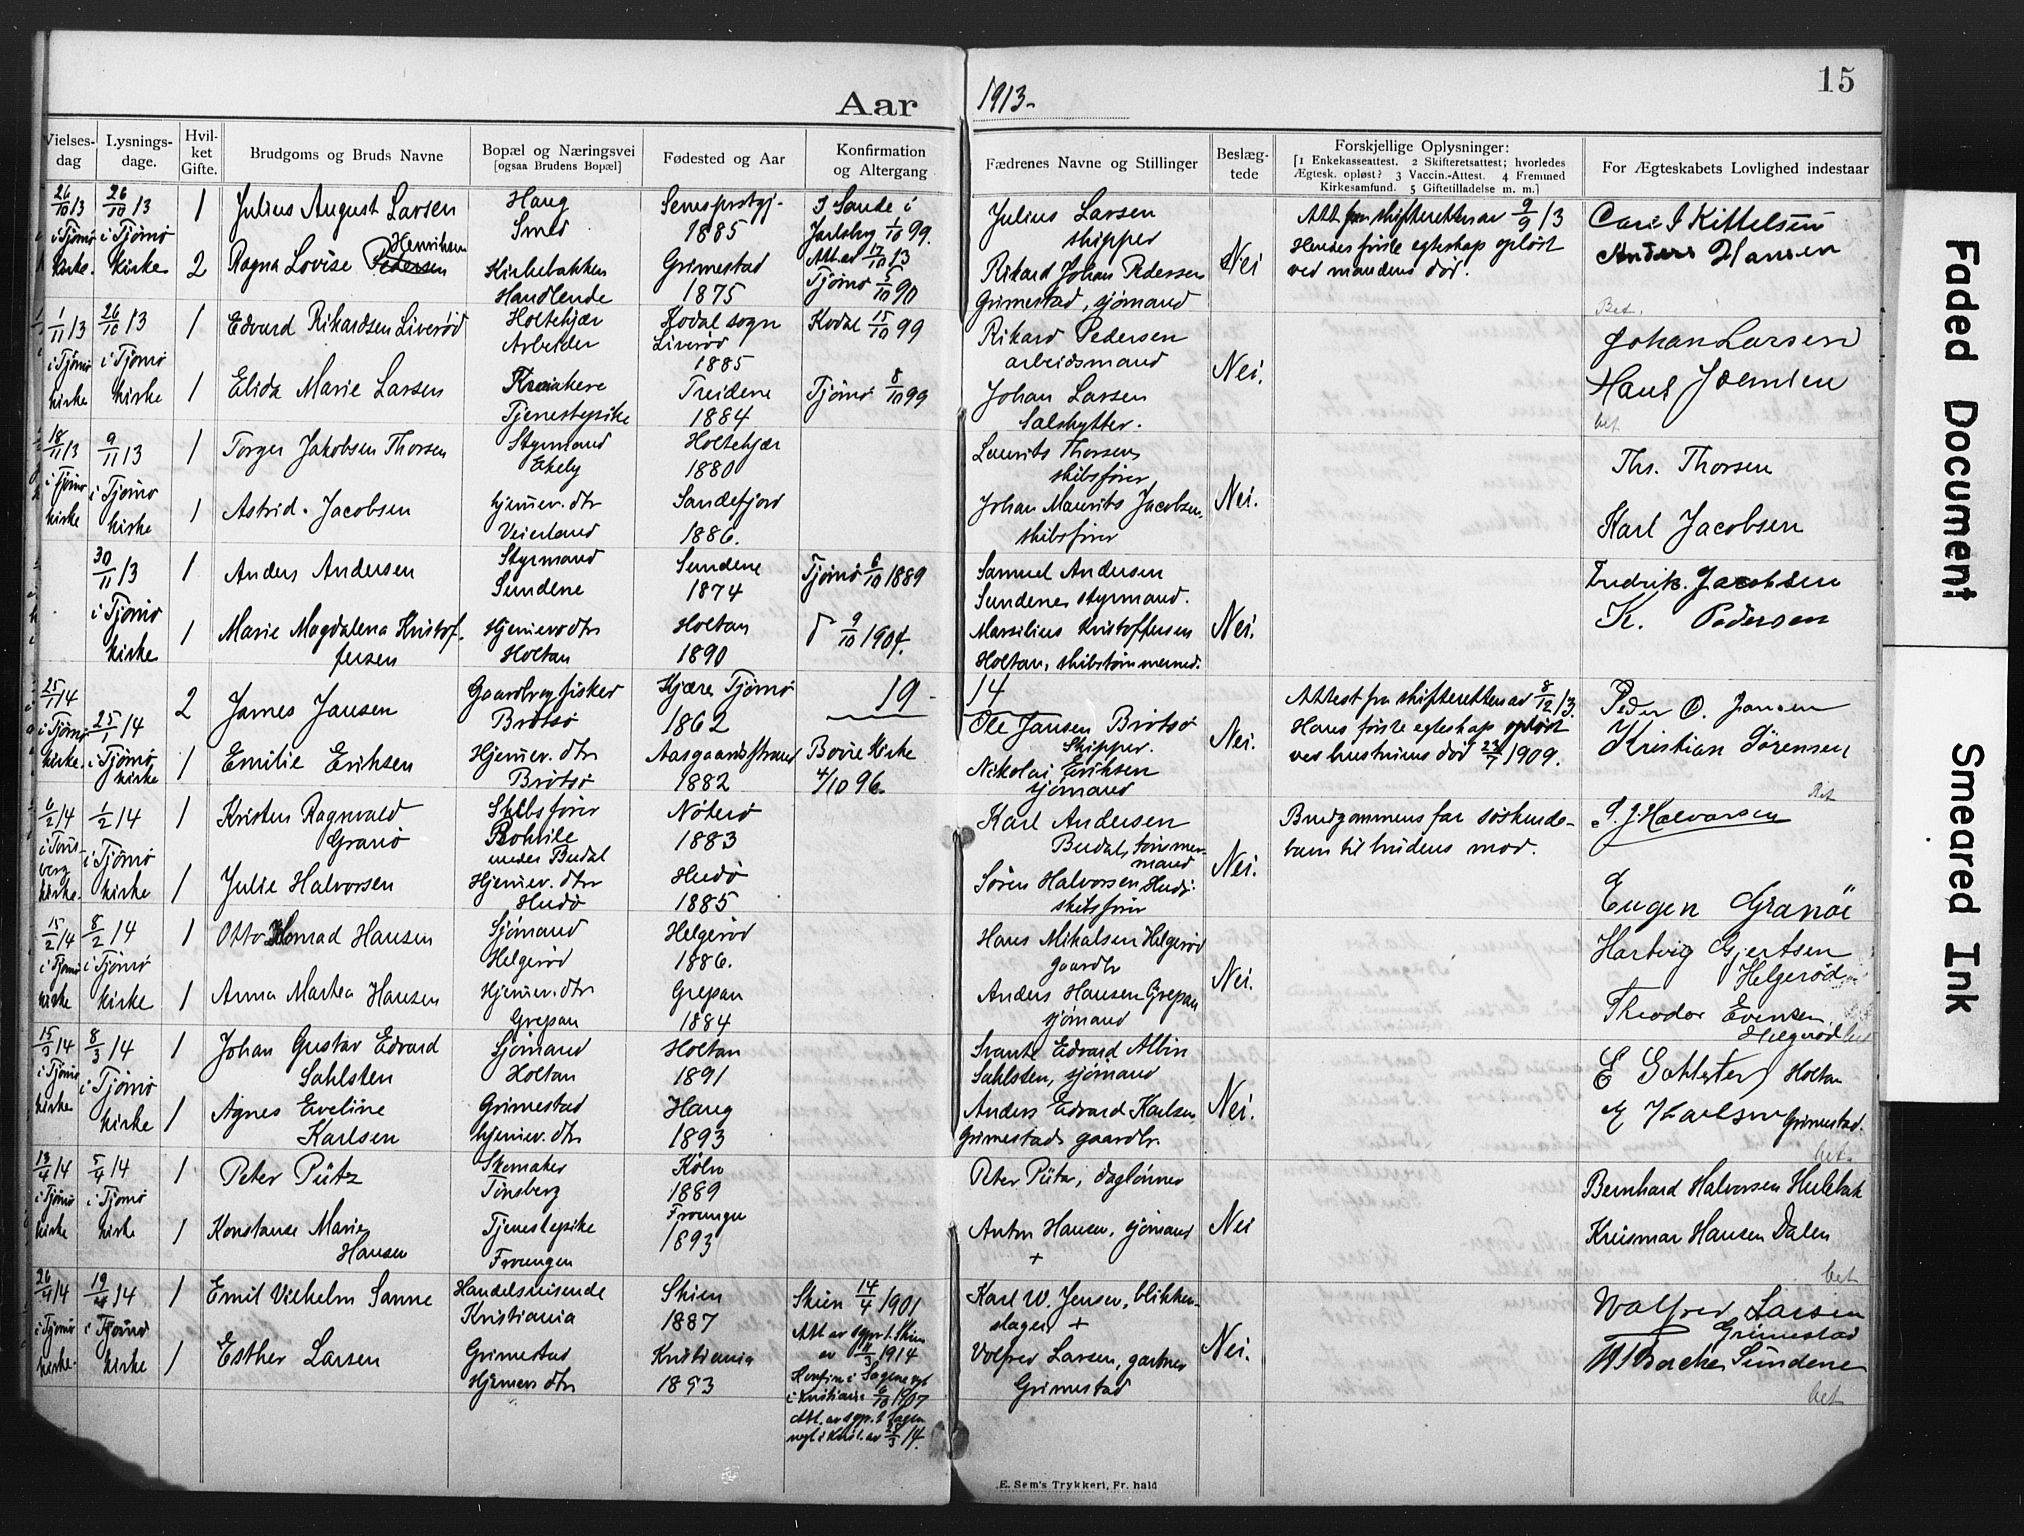 Aar 1913. 15
Vielses-dag
Lysnings-dage.
Hvil-ket Gifte.
Brudgoms og Bruds Navne
Bopæl og Næringsvei
[ogsaa Brudens Bopæl]
Fødested og Aar
Konfirmation
og Altergang
Fædrenes Navne og Stillinger
Beslæg-tede
Forskjellige Oplysninger:
[1 Enkekasseattest. 2 Skifteretsattest; hvorledes
Ægtesk. opløst? 3 Vaccin.-Attest. 4 Fremmed
Kirkesamfund. 5 Giftetilladelse m. m.]
For Ægteskabets Lovlighed indestaar
26/10 13 i Tjømø kirke.
26/10 13 i Tjømø kirke
1
Julius August Larsen
Haug
Smed
1885
S Sande i
Jarlsberg 1/10 99.
Julius Larsen
skipper
2
Ragna Lovise Pedersen Henriksen
Kirkebakken
Handlende
Grimestad
1875
Tjømø 5/10 90
Rikard Johan Pedersen
Grimestad, sjømand
Nei
Att fra skifteretten av 9/9 13
Hendes første egteskap opløst
ved mandens død.
Carl J Kittelsen
Anders Hansen
Bet.
1/11 13 i Tjømø kirke
26/10 13 i Tjømø kirke
1
Edvard Rikardsen Liverød
Holtekjær
Arbeider
Kodal sogn
Liverød
1885
Kodal 15/10 99
Rikard Pedersen
arbeidsmand
1
Elida Marie Larsen
Tjenestepike
Treidene
1884
Tjømø 8/10 99
Johan Larsen
Nei.
Johan Larsen
bet
18/11 13 i Tjømø kirke
9/11 13 i Tjømø kirke
1
Torger Jakobsen Thorsen
Styrmand
Ekely
Holtekjær
1880
Laurits Thorsen,
skibsfører
1
Astrid Jacobsen
hjemev. dtr
Veierland
Sandefjord
1886.
Johan Maurits Jacobsen,
skibsfører
Nei.
Ths. Thorsen
Karl Jacobsen
30/11 13 i Tjømø kirke
1
Anders Andersen
Styrmand
Sundene
Sundene
1874
Tjømø 6/10 1889
Samuel Andersen
Sundene, styrmand.
1
Marie Magdalena Kristoffersen
Hjemev dtr
Holtan
Holtan
1890
9/10 1904.
Marsilius Kristoffersen
Holtan, skibstømmermd.
Nei.
Fredrik Jacobsen
K. Pedersen
19 14
25/1 14 i Tjømø kirke.
25/1 14 i Tjømø kirke
2
James Jansen
Gaardbr og fisker
Brøtsø
Kjære Tjømø
1862
Ole Jansen Brøtsø
Skipper.
1
Emilie Eriksen
Hjemev. dtr
Brøtsø
Aasgaardsstrand
1882
Borre Kirke
4/10 96.
Nikolai Eriksen
sjømand
Nei.
Attest fra skifteretten av 8/12 13.
Hans første egteskap opløst
ved hustruens død 23/7 1909.
Peder O. Jansen
Kristian Sørensen
Bet
6/2 14 i Tønsberg kirke.
1/2 14 i Tjømø kirke
1
Kristen Ragnvald
Granø
Skibsfører
under Budal
Nøterø
1883
Karl Andersen
Budal, tømmermand
1
Julie Halvorsen
Hjemev. dtr
Hudø
Hudø
1885
Søren Halvorsen Hudø
skibsfører
Nei.
Brudgommens far søskende-
barn til brudens mor.
S. J. Halvorsen
Eugen Granøe
15/2 14 i Tjømø kirke
8/2 14 i Tjømø kirke
1
Otto Konrad Hansen
Sjømand
Helgerød
Helgerød
1886.
Hans Mikalsen Helgerød
gaardbr
1
Anna Martea Hansen
Hjemev. dtr
Grepan
Grepan
1884
Anders Hansen Grepan
sjømand
Nei.
Hartvig Gjertsen
Helgerød
Theodor Evensen
Helgerød
bet
15/3 14 i Tjømø kirke
8/3 14 i Tjømø kirke
1
Johan Gustav Edvard
Sahlsten
Sjømand
Holtan
Holtan
1891
Svante Edvard Albin
Sahlsten, sjømand
1
Agnes Eveline
Karlsen
Grimestad
hjemev. dtr
Haug
1893
Anders Edvard Karlsen,
Grimestad, gaardbr.
Nei.
Holtan
Karlsen Grimestad.
bet.
13/4 14 i Tjømø kirke
5/4 14 i Tjømø kirke
1
Peter Pütz
Skomaker
Tønsberg
Köln
1889
Peter Pütz, dagløner
1
Konstanse Marie
Hansen
Tjenestepike
Froungen
Froungen
1893
Anton Hansen, sjømand
+
Nei
Bernhard Halvorsen Hulebak
Kriesmar Hansen Dalen
bet
26/4 14 i Tjømø kirke.
19/4 14 i Tjømø kirke
1
Emil Vilhelm Sanne
Handelsreisende
Kristiania
Skien
1887
Skien 14/4 1901
Att av sgpr. t. Skien
av 11/3 1914
Karl W. Jensen, blikken-
slager +
1
Esther Larsen
Grimestad
Hjemev dtr
Kristiania
1893
Konfirm i Sagene
i Kristiania 6/10 1907
Volfred Larsen, gartner
Grimestad
Nei.
Walfred Larsen
Grimestad
Backe Sundene
bet
E. Sem's Trykkeri, Fr. hald
Faded Document
Smeared Ink